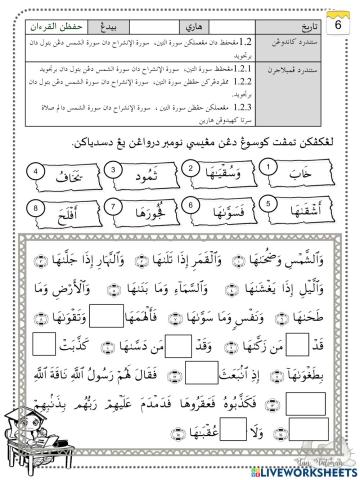 6
تاريخ هاري بيدڠ حفظن القرءان
ستندرد كاندوڠن
1.2 مڠحفظ دان مڠعملكن سورة التين، سورة الإنشراح دان سورة الشمس دڠن بتول دان برتجويد
ستندرد ڤمبلاجرن
1.2.1 مڠحفظ سورة التين، سورة الإنشراح دان سورة الشمس دڠن بتول دان برتجويد.
1.2.2 ممڤردڠركن حفظن سورة التين، سورة الإنشراح دان سورة الشمس دڠن بتول دان برتجويد.
1.2.3 مڠعملكن حفظن سورة التين، سورة الإنشراح دان سورة الشمس دالم صلاة سرتا كهيدوڤن هارين
لڠكڤكن تمڤت كوسوڠ دڠن مڠيسي نومبر درواڠن يڠ دسدياكن.
1 خَابَ 2 وَسُقْيَـٰهَا 3 ثَمُودُ 4 يَخَافُ
5 أَشْقَىٰهَا 6 فَسَوَّىٰهَا 7 فُجُورَهَا 8 أَفْلَحَ
وَٱلشَّمْسِ وَضُحَىٰهَا وَٱلْقَمَرِ إِذَا تَلَىٰهَا وَٱلنَّهَارِ إِذَا جَلَّىٰهَا
وَٱلَّيْلِ إِذَا يَغْشَىٰهَا وَٱلسَّمَآءِ وَمَا بَنَىٰهَا وَٱلْأَرْضِ وَمَا
طَحَىٰهَا وَنَفْسٍ وَمَا سَوَّىٰهَا فَأَلْهَمَهَا وَتَقْوَىٰهَا
قَدْ مَن زَكَّىٰهَا وَقَدْ مَن دَسَّىٰهَا كَذَّبَتْ
بِطَغْوَىٰهَآ إِذِ ٱنۢبَعَثَ فَقَالَ لَهُمْ رَسُولُ ٱللَّهِ نَاقَةَ ٱللَّهِ
فَكَذَّبُوهُ فَعَقَرُوهَا فَدَمْدَمَ عَلَيْهِمْ رَبُّهُم بِذَنۢبِهِمْ
وَلَا عُقْبَـٰهَا
LIVEWORKSHEETS